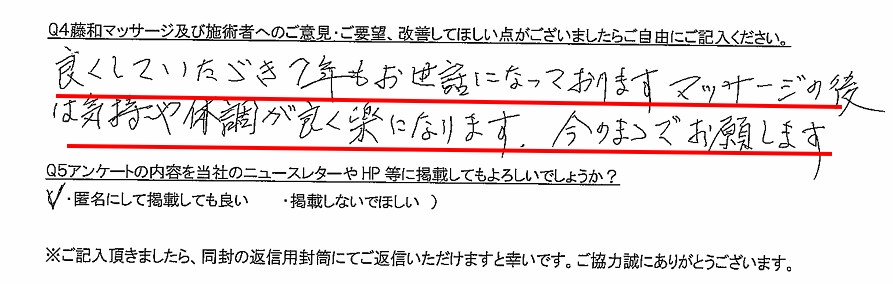 Q4藤和マッサージ及び施術者へのご意見・ご要望、改善してほしい点がございましたらご自由にご記入ください。
良くしていただき7年もお世話になっております マッサージの後
は気持や体調が良く楽になります. 今のままでお願します
Q5アンケートの内容を当社のニュースレターやHP等に掲載してもよろしいでしょうか？
(✓・匿名にして掲載しても良い ・掲載しないでほしい )
※ご記入頂きましたら、同封の返信用封筒にてご返信いただけますと幸いです。ご協力誠にありがとうございます。